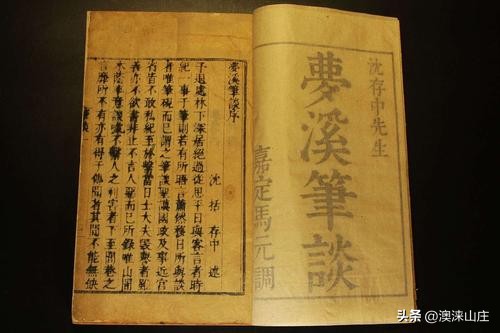 沈存中先生
夢溪筆談
嘉定馬元調
夢溪筆談序
沈括存中述
予退處林下深居絕過從思平日與客言者時
紀一事于筆則若有所晤言蕭然移日所與談
者唯筆硯而已謂之筆談聖謨國政及事近宮
省皆不敢私紀至於繫當日士大夫毀譽者雖
善亦不欲書非止不言人惡而已所錄唯山間
木蔭率意談噱不繫人之利害者下至閭巷之
言靡所不有亦有得于傳聞者其間不能無缺
头条 @澳涞山庄